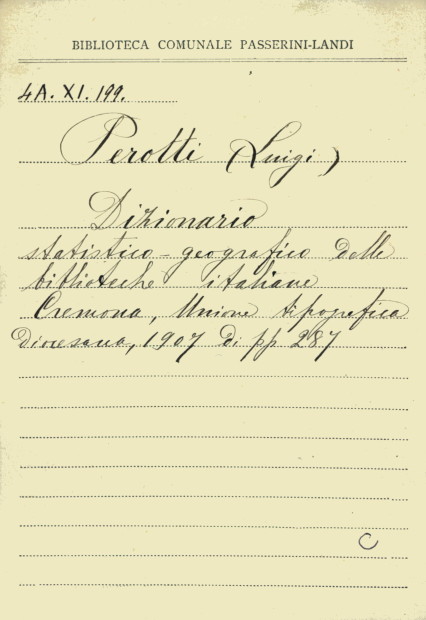 BIBLIOTECA COMUNALE PASSERINI-LANDI
4A. XI. 199.
Perotti (Luigi)
Dizionario
statistico-geografico delle
biblioteche italiane
Cremona, Unione tipografica
Diocesana, 1907 di pp 287
C